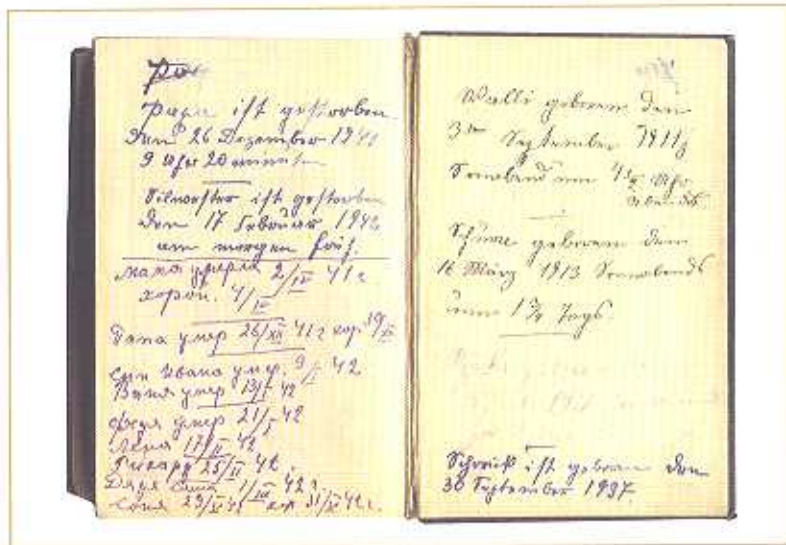 Papa ist gestorben
den 26 Dezember 1941
9 Uhr 20 minuten
Silwester ist gestorben
den 17 Februar 1942
am morgen früh.
мама умерла 2/IV 41 г
хорон. 4/IV
Папа умер 26/XII 41 г хор 30/XII
сын Ивана умер. 9/I 42
Ваня умер 13/I 42
Федя умер 21/I 42
Лена 17/II 42
Рихард 25/II 42.
Дядя Саша 1/III 42 г.
Соня 29/XI 42 хор 31/XI 42 г.
Walli geboren den
3ten September 1911
Sonnabend um Uhr
abends.
geboren den
16 März 1913 Sonnabends
um Tags.
ist geboren den
30 September 1937.